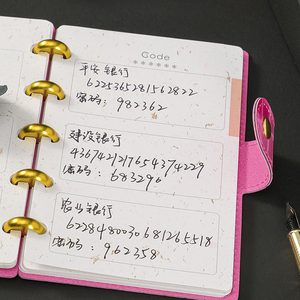 Code
******
平安银行
6225365281562822
密码: 982362
建设银行
4367421217654374229
密码: 683296
农业银行
6228480030681265518
密码: 962358